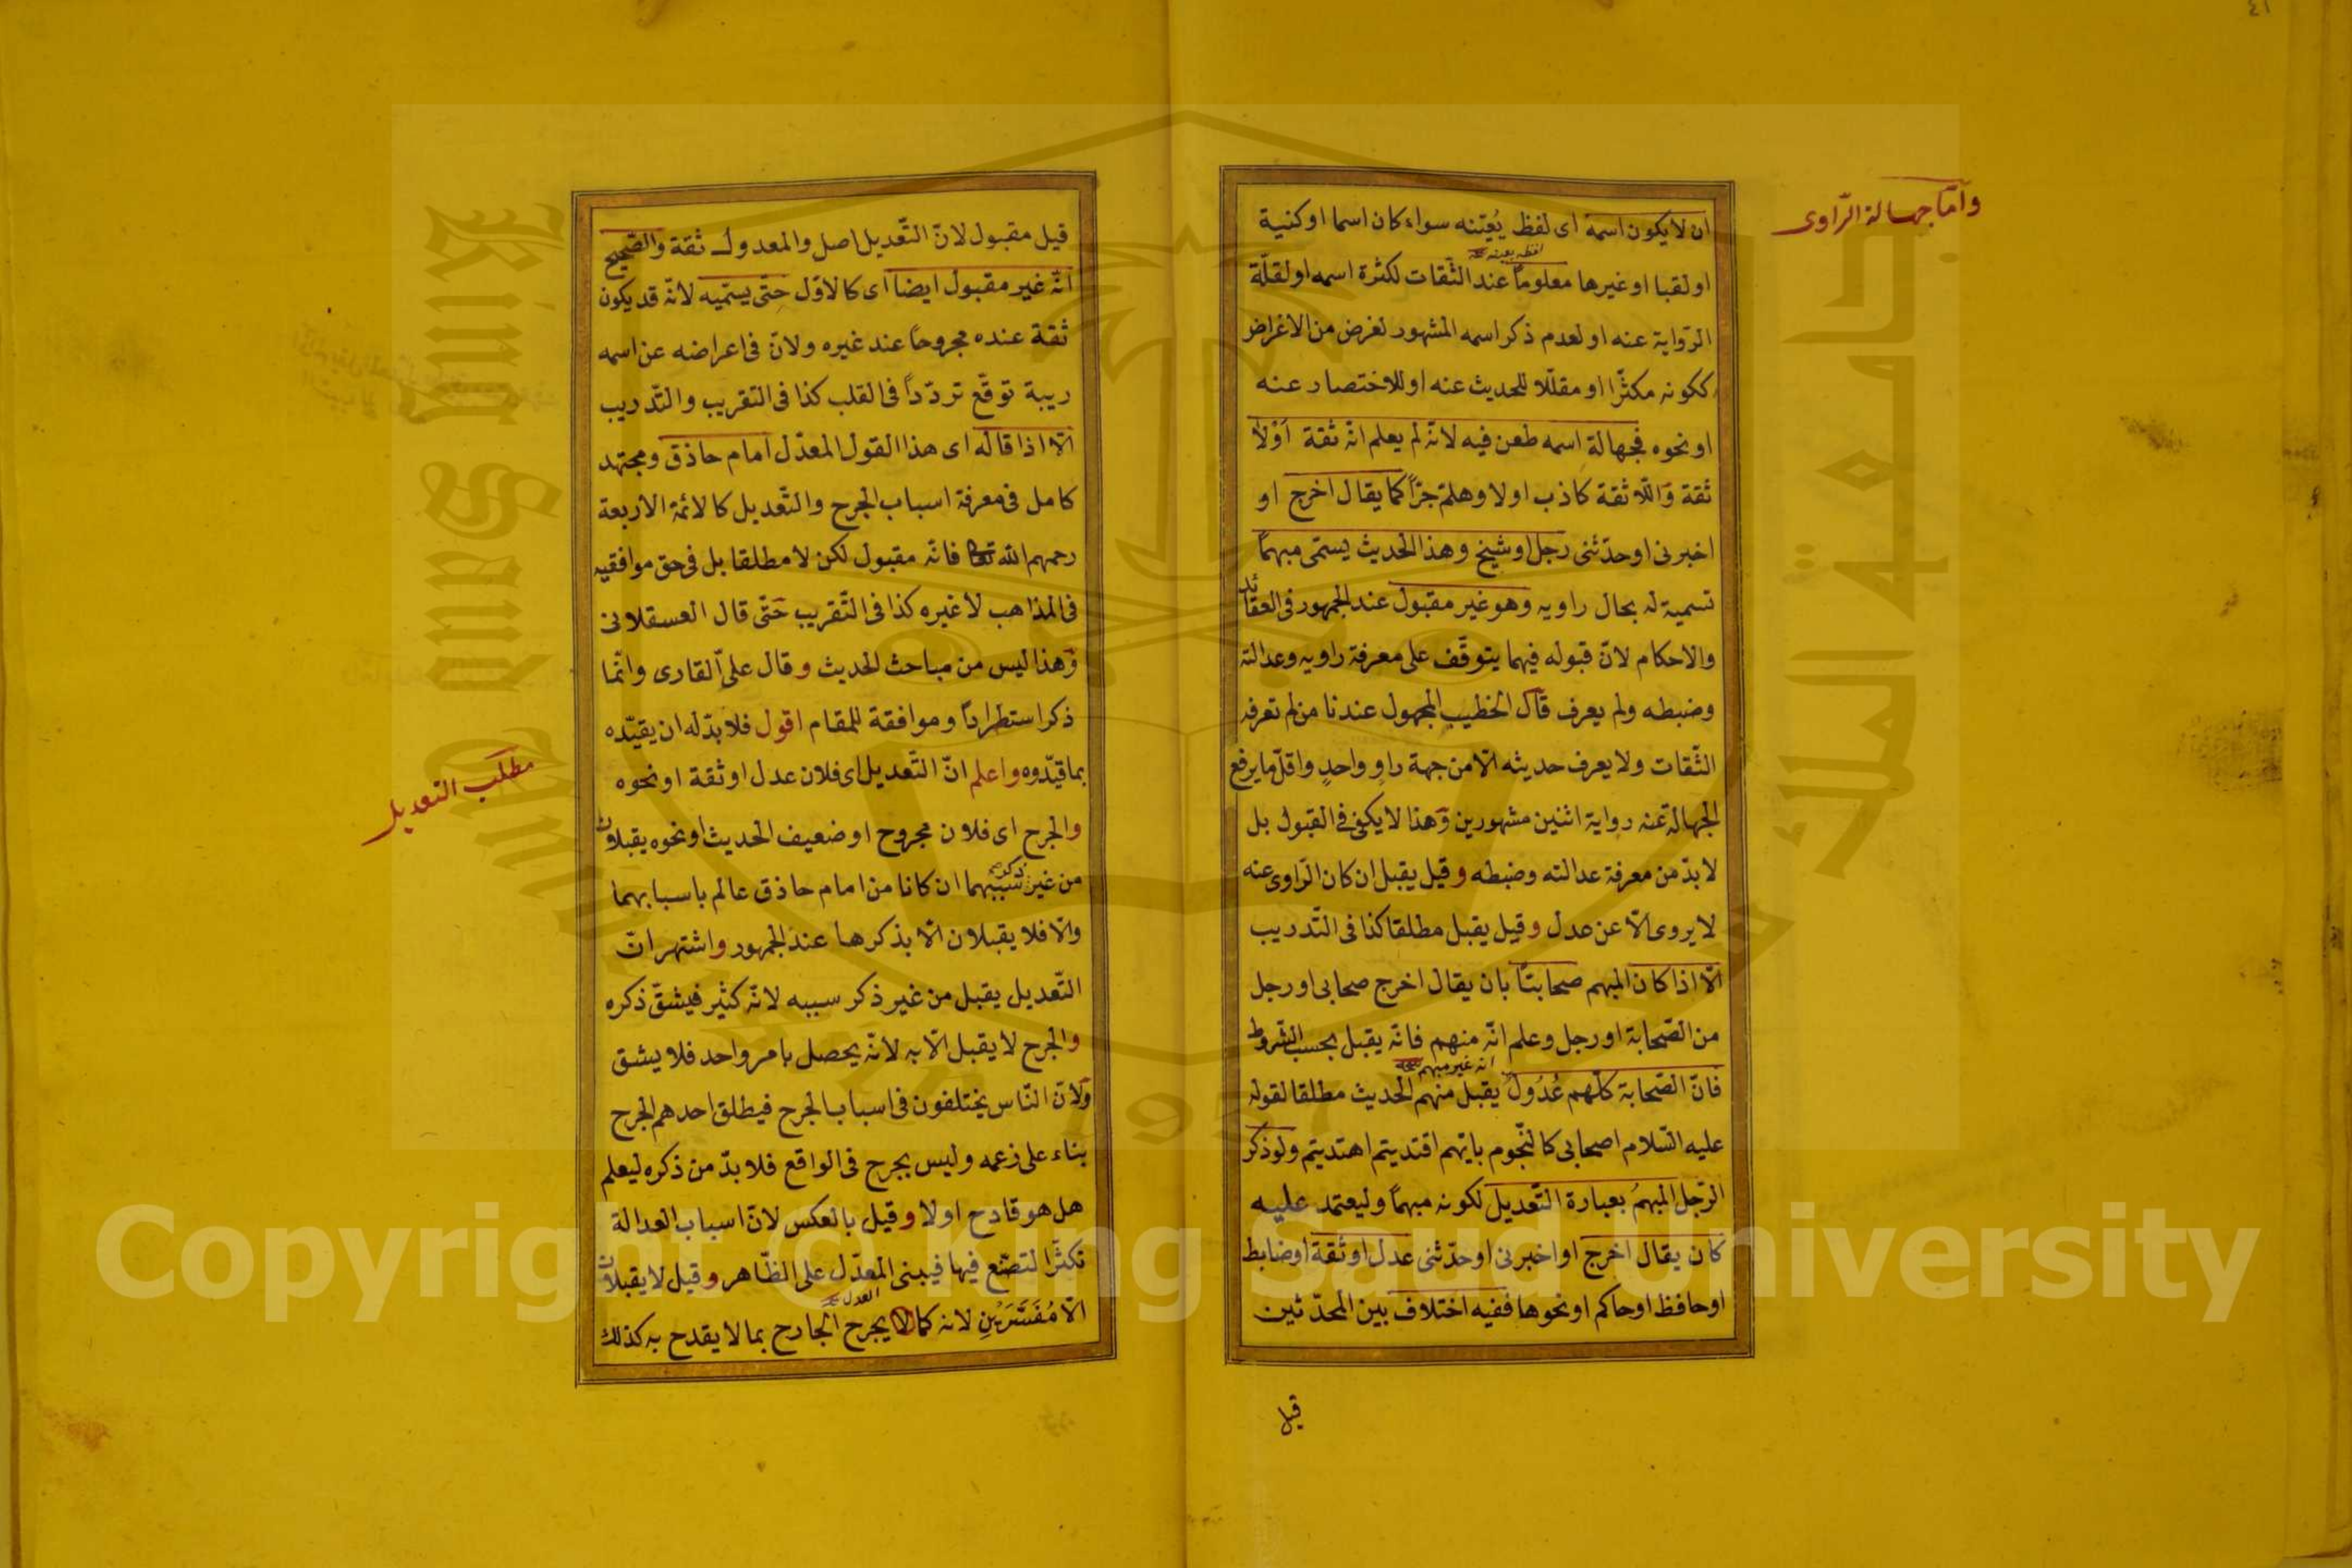 ٤١
وأمّا جهالة الرّاوى
ان لا يكون اسمه اى لفظ يُعيّنه سواء كان اسما او كنية
او لقبا او غيرها معلومًا عند الثّقات لكثرة اسمه او لقلّة
الرّواية عنه او لعدم ذكر اسمه المشهور لغرض من الاغراض
ككونه مكثرًا او مقلّلا للحديث عنه او للاختصار عنه
او نحوه فجهالة اسمه طعن فيه لانّه لم يعلم انّه ثقة أوْلا
ثقة وَاللّا ثقة كاذب اولا وهلمّ جرّاً كما يقال اخرج او
اخبرنى او حدّثنى رجل او شيخ وهذا الحديث يسمّى مبهمًا
تسمية له بحال راويه وهو غير مقبول عند الجمهور فى العقائد
والاحكام لانّ قبوله فيهما يتوقّف على معرفة راويه وعدالته
وضبطه ولم يعرف قال الخطيب المجهول عندنا من لم تعرفه
الثّقات ولا يعرف حديثه الّا من جهة راوٍ واحدٍ واقلّ ما يرفع
الجهالة عنه رواية اثنين مشهورين وَهذا لا يكفى فى القبول بل
لا بدّ من معرفة عدالته وضبطه وقيل يقبل ان كان الرّاوى عنه
لا يروى الّا عن عدل وقيل يقبل مطلقا كذا فى التّدريب
الّا اذا كان المبهم صحابيًّا بان يقال اخرج صحابى او رجل
من الصّحابة او رجل وعلم انّه منهم فانّه يقبل بحسب الشّروط
انه غير مبهم
فانّ الصّحابة كلّهم عُدُولٌ يقبل منهم الحديث مطلقا لقوله
عليه السّلام اصحابى كالنّجوم بايّهم اقتديتم اهتديتم ولو ذكر
الرّجل المبهمُ بعبارة التّعديل لكونه مبهمًا وليعتمد عليه
كان يقال اخرج او اخبرنى او حدّثنى عدل او ثقة او ضابط
او حافظ او حاكم او نحوها ففيه اختلاف بين المحدّثين
قيل
قيل مقبول لانّ التّعديل اصل والمعدول ثقة والصّحيح
انّه غير مقبول ايضا اى كالاوّل حتّى يسمّيه لانّه قد يكون
ثقة عنده مجروحًا عند غيره ولانّ فى اعراضه عن اسمه
ريبة توقّع تردّدًا فى القلب كذا فى التقريب والتّدريب
الّا اذا قاله اى هذا القول المعدّل امام حاذق ومجتهد
كامل فى معرفة اسباب الجرح والتّعديل كالائمّة الاربعة
رحمهم الله تعالى فانّه مقبول لكن لا مطلقا بل فى حق موافقيه
فى المذاهب لا غيره كذا فى التّقريب حَتّى قال العسقلانى
وَهذا ليس من مباحث الحديث وقال علىّ القارى وانّما
ذكر استطرادًا وموافقة للمقام اقول فلا بدّ له ان يقيّده
بما قيّدوه واعلم انّ التّعديل اى فلان عدل او ثقة او نحوه
مطلب التعديل
والجرح اى فلان مجروح او ضعيف الحديث او نحوه يقبلان
من غير ذكر سببهما ان كانا من امام حاذق عالم باسبابهما
والّا فلا يقبلان الّا بذكرها عند الجمهور واشتهر انّ
التّعديل يقبل من غير ذكر سببه لانّه كثير فيشقّ ذكره
والجرح لا يقبل الّا به لانّه يحصل بامر واحد فلا يشق
ولانّ النّاس يختلفون فى اسباب الجرح فيطلق احدهم الجرح
بناء على زعمه وليس بجرح فى الواقع فلا بدّ من ذكره ليعلم
هل هو قادح اولا وقيل بالعكس لانّ اسباب العدالة
تكثّر التصنّع فيها فيبنى المعدّل على الظّاهر وقيل لا يقبلان
العدل
الّا مُفَسَّرَيْنِ لانه كما لا يجرح الجارح بما لا يقدح به كذلك
King Saud University
جامعة الملك
1957
Copyright © King Saud University